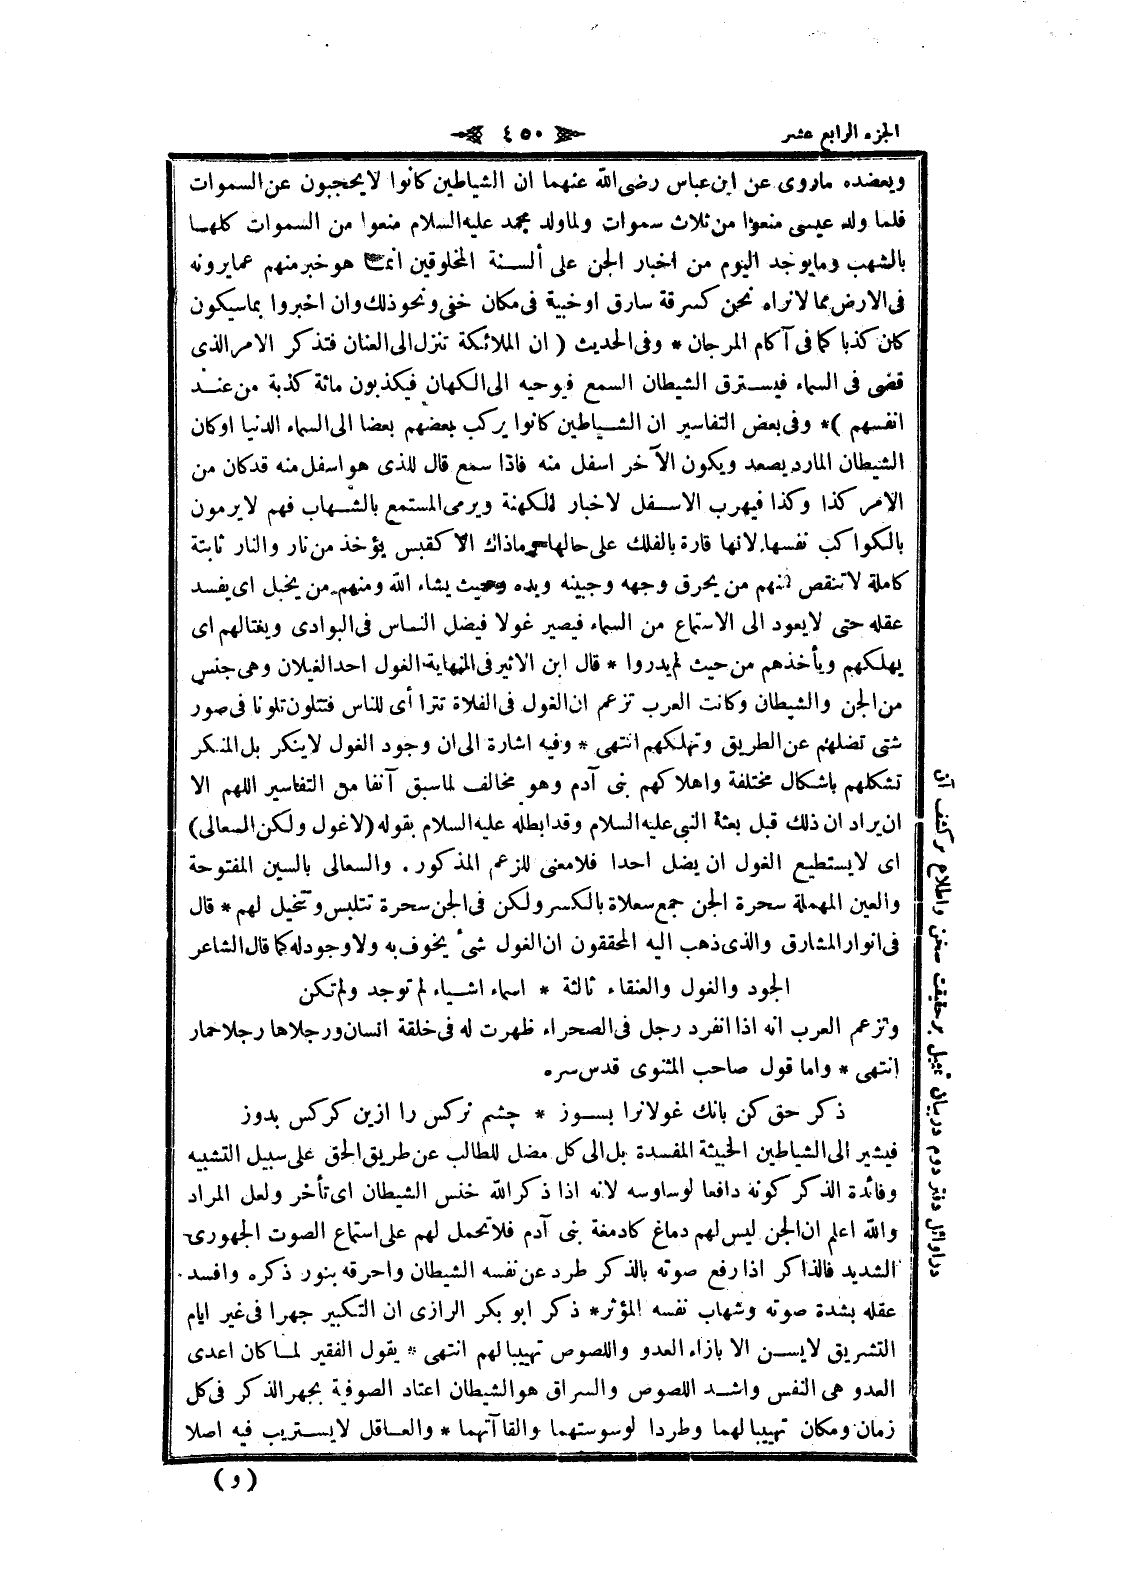 الجزء الرابع عشر
٤٥٠
ويعضده ماروى عن ابن عباس رضى الله عنهما ان الشياطين كانوا لايحجبون عن السموات
فلما ولد عيسى منعوا من ثلاث سموات ولما ولد محمد عليه السلام منعوا من السموات كلها
بالشهب ومايوجد اليوم من اخبار الجن على ألسنة المخلوقين انما هو خبر منهم عما يرونه
فى الارض مما لانراه نحن كسرقة سارق او خبية فى مكان خفى ونحو ذلك وان اخبروا بماسيكون
كان كذبا كما فى آكام المرجان * وفى الحديث ( ان الملائكة تنزل الى العنان فتذكر الامر الذى
قضى فى السماء فيسترق الشيطان السمع فيوحيه الى الكهان فيكذبون مائة كذبة من عند
انفسهم )* وفى بعض التفاسير ان الشياطين كانوا يركب بعضهم بعضا الى السماء الدنيا او كان
الشيطان المارد يصعد ويكون الآخر اسفل منه فاذا سمع قال للذى هو اسفل منه قدكان من
الامر كذا وكذا فيهرب الاسفل لاخبار الكهنة ويرمى المستمع بالشهاب فهم لايرمون
بالكواكب نفسها لانها قارة بالفلك على حالها وماذاك الا كقبس يؤخذ من نار والنار ثابتة
كاملة لاتنقص فمنهم من يحرق وجهه وجبينه ويده وحيث يشاء الله ومنهم من يخبل اى يفسد
عقله حتى لايعود الى الاستماع من السماء فيصير غولا فيضل الناس فى البوادى ويغتالهم اى
يهلكهم ويأخذهم من حيث لم يدروا * قال ابن الاثير فى النهاية الغول احد الغيلان وهى جنس
من الجن والشيطان وكانت العرب تزعم ان الغول فى الفلاة تترا أى للناس فتتلون تلونا فى صور
شتى تضلهم عن الطريق وتهلكهم انتهى * وفيه اشارة الى ان وجود الغول لاينكر بل المنكر
تشكلهم باشكال مختلفة واهلاكهم بنى آدم وهو مخالف لماسبق آنفا من التفاسير اللهم الا
ان يراد ان ذلك قبل بعثة النبى عليه السلام وقد ابطله عليه السلام بقوله (لاغول ولكن السعالى)
اى لايستطيع الغول ان يضل احدا فلامعنى للزعم المذكور . والسعالى بالسين المفتوحة
والعين المهملة سحرة الجن جمع سعلاة بالكسر ولكن فى الجن سحرة تتلبس وتتخيل لهم * قال
فى انوار المشارق والذى ذهب اليه المحققون ان الغول شئ يخوف به ولا وجود له كما قال الشاعر
الجود والغول والعنقاء ثالثة * اسماء اشياء لم توجد ولم تكن
وتزعم العرب انه اذا انفرد رجل فى الصحراء ظهرت له فى خلقة انسان ورجلاها رجلا حمار
انتهى * واما قول صاحب المثنوى قدس سره
ذكر حق كن بانك غولانرا بسوز * چشم نركس را ازين كركس بدوز
فيشير الى الشياطين الخبيثة المفسدة بل الى كل مضل للطالب عن طريق الحق على سبيل التشبيه
وفائدة الذكر كونه دافعا لوساوسه لانه اذا ذكر الله خنس الشيطان اى تأخر ولعل المراد
والله اعلم ان الجن ليس لهم دماغ كادمغة بنى آدم فلا تحمل لهم على استماع الصوت الجهورى
الشديد فالذاكر اذا رفع صوته بالذكر طرد عن نفسه الشيطان واحرقه بنور ذكره وافسد
عقله بشدة صوته وشهاب نفسه المؤثر* ذكر ابو بكر الرازى ان التكبير جهرا فى غير ايام
التشريق لايسن الا بازاء العدو واللصوص تهيبا لهم انتهى * يقول الفقير لما كان اعدى
العدو هى النفس واشد اللصوص والسراق هو الشيطان اعتاد الصوفية بجهر الذكر فى كل
زمان ومكان تهيبا لهما وطردا لوسوستهما والقاآتهما * والعاقل لايستريب فيه اصلا
( و )
دراوائل دفتر دوم دربيان تمثيل برحقيقت سخن واطلاع بركشف آن